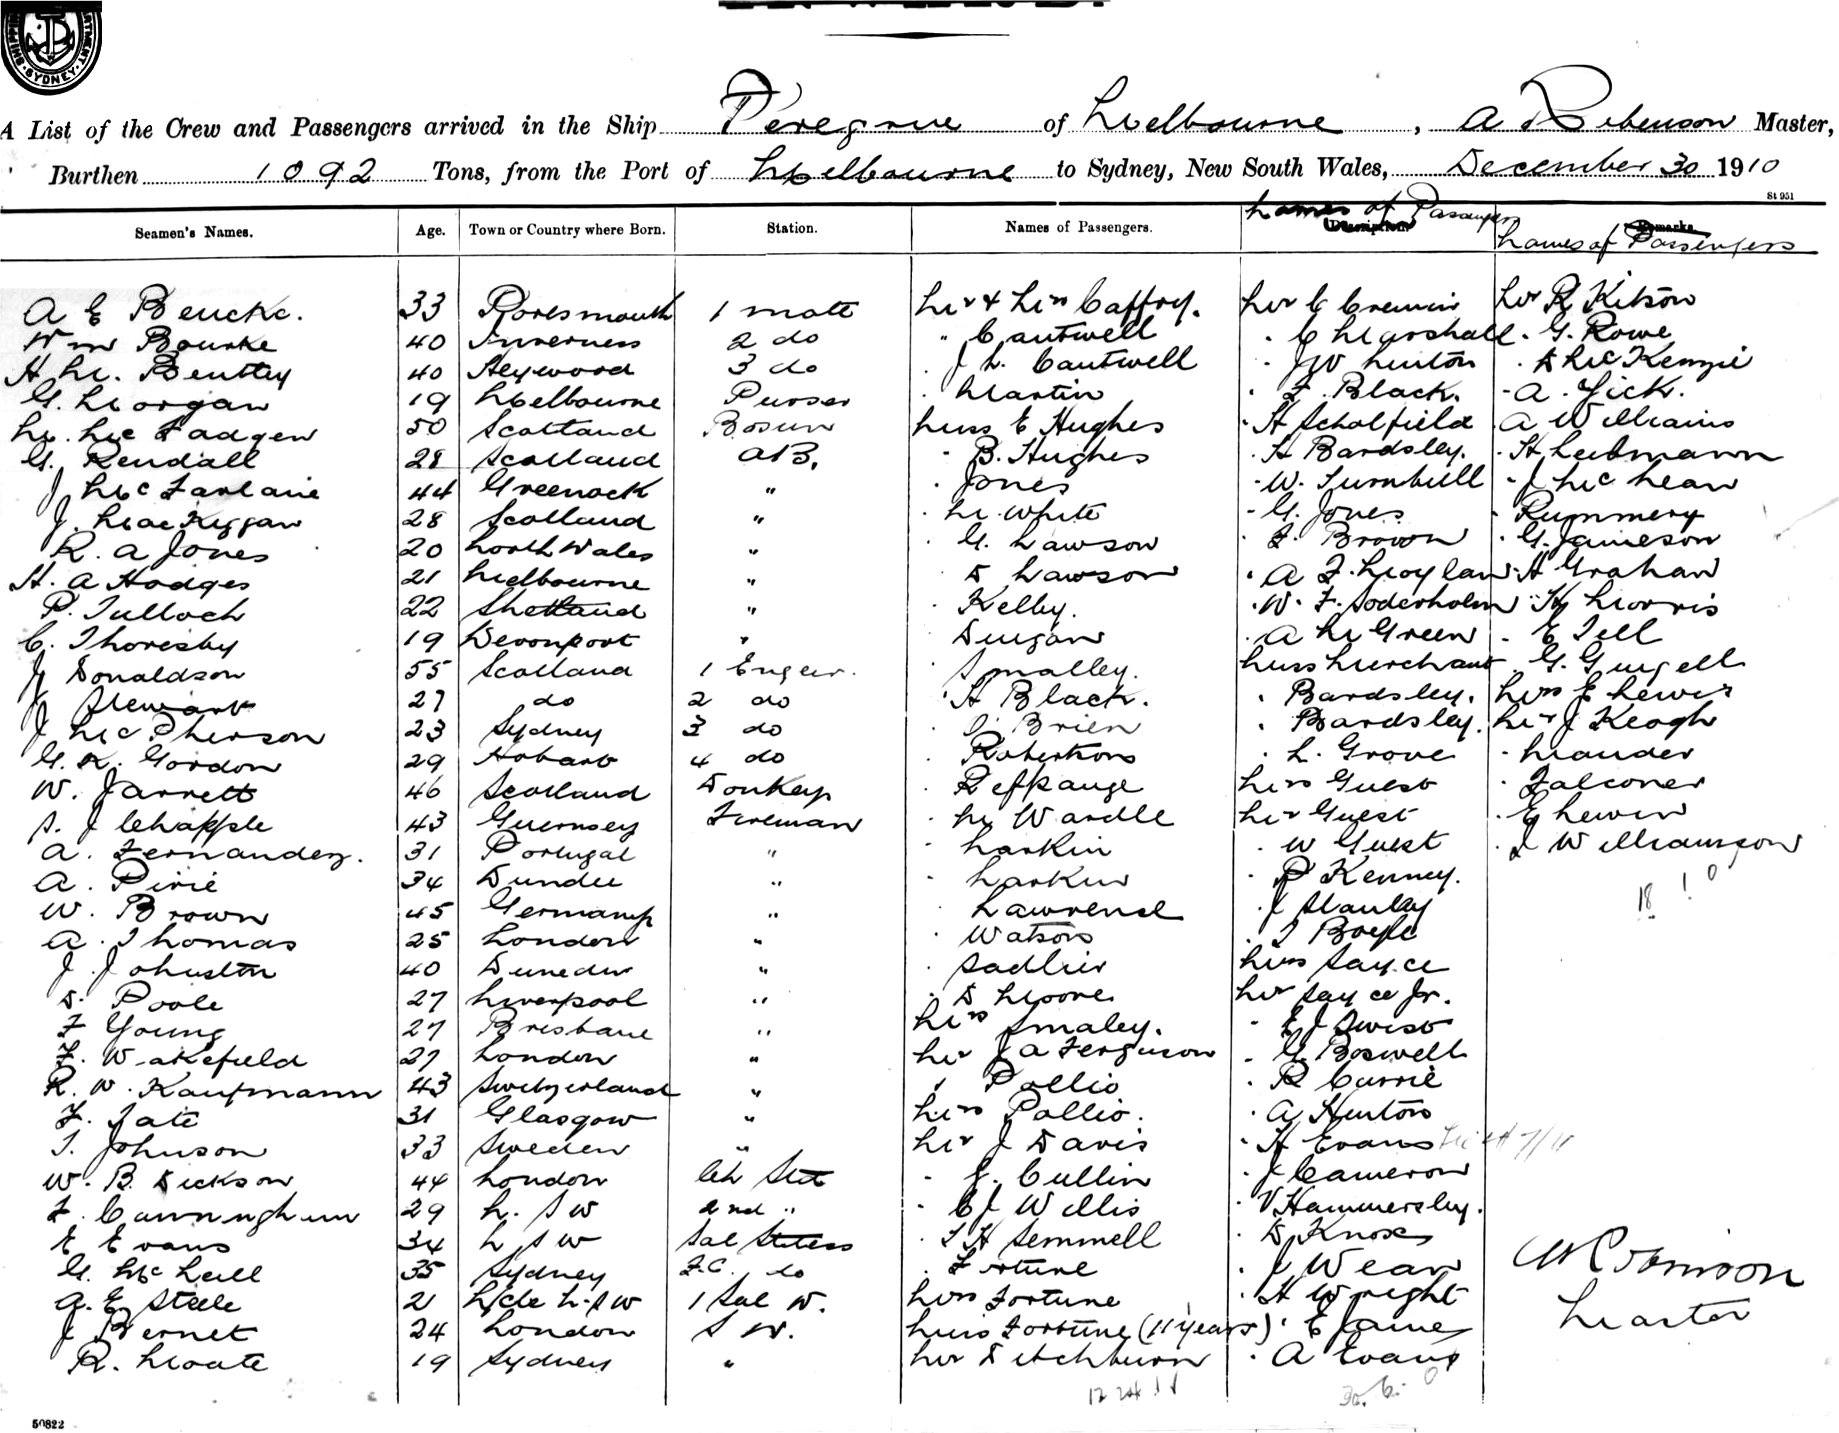 SYDNEY
A List of the Crew and Passengers arrived in the Ship Peregrine of Melbourne, A Robinson Master,
Burthen 1092 Tons, from the Port of Melbourne to Sydney, New South Wales, December 30 1910
St 951
Seamen's Names. Age. Town or Country where Born. Station. Names of Passengers. Names of Passengers Names of Passengers
A E Beucke. 33 Portsmouth 1 mate Mr & Mrs Caffrey. Mr C Cremin Mr R Kitson
Wm Bourke 40 Inverness 2 do " Cantwell " C Marshall " G. Rowe
H M. Bentley 40 Heywood 3 do " J L. Cantwell " J W Linton " D McKenzie
G. Morgan 19 Melbourne Purser " Martin " F. Black. " A. Gick.
M. McFadgen 50 Scotland Bosun Miss E Hughes " H Scholfield " A Williams
G. Rendall 28 Scotland AB. " B. Hughes " H Bardsley. " H Leibmann
J McFarlane 44 Greenock " " Jones " W. Turnbull " J McLean
J. MacKiggan 28 Scotland " " M. White " G. Jones " Rummery
R. A Jones 20 North Wales " " G. Lawson " F. Brown " G. Jameson
H. A Hodges 21 Melbourne " " D Lawson " A F. Moylan " H Graham
P. Tulloch 22 Shetland " " Kelly. " W. F. Soderholm " Hy Morris
C. Thoresby 19 Devonport " " Duigan " A M Green " E Tell
J Donaldson 55 Scotland 1 Engeer. " Smalley. Miss Merchant " G. Gurgell
J Stewart 27 do 2 do " H Black. " Bardsley. Mrs E Lewis
J McPherson 23 Sydney 3 do " O'Brien " Bardsley. Mr J Keogh
G. K. Gordon 29 Hobart 4 do " Robertson " L. Grove " Mander
W. Jarrett 46 Scotland Donkey " Mrs Guest " Falconer
S. J Chapple 43 Guernsey Fireman " M Wardle Mr Guest " E Lewin
A. Fernandez. 31 Portugal " " Larkin " W Guest " J Williamson
A. Pirie 34 Dundee " " Larkin " P Kenney.
W. Brown 45 Germany " " Lawrence " J Stanley
A. Thomas 25 London " " Watson " T Boyle
J. Johnston 40 Dunedin " " Sadlier Mrs Sayce
D. Poole 27 Liverpool " " D Moore Mr Sayce Jr.
F Young 27 Brisbane " Mrs Smaley. " E J Swist
F. Wakefield 27 London " Mr J A Ferguson " G Boswell
R. W. Kaufmann 43 Switzerland " " Pollio " R Currie
F. Tate 31 Glasgow " Mrs Pollio. " A Hinton
T. Johnson 33 Sweden " Mr J Davis " H Evans
W. B. Dickson 44 London Ch Std " J. Cullin " J Cameron
F. Cunningham 29 N. S W 2nd " " C J Willis " V Hammersley.
E Evans 34 N S W Sal Stdess " T H Semmell " D Knox
G. McNeill 35 Sydney F.C. do " Fortune " J Wear
A. E Steele 21 Lyde N.S W 1 Sal W. Mrs Fortune " H Wright
J Bernet 24 London S W. Miss Fortune (11 years) " E James
R. Moate 19 Sydney " Mr Ditchburn " A Evans
18 1 0
A Robinson
Master
50822